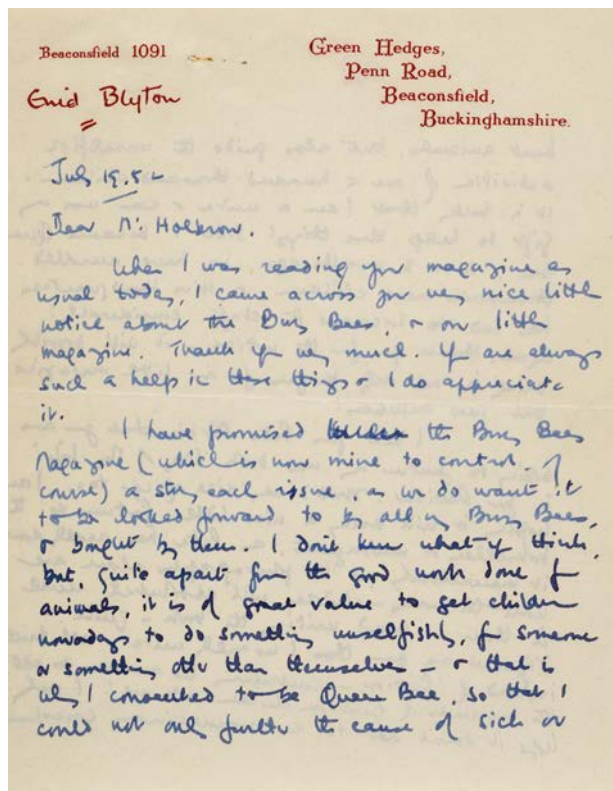 Beaconsfield 1091
Green Hedges,
Penn Road,
Beaconsfield,
Buckinghamshire.
Enid Blyton
July 19. 52
Dear Mr Holbrow.
When I was reading your magazine as
usual today, I came across your very nice little
notice about the Busy Bees, & our little
magazine. Thank you very much. You are always
such a help in these things & I do appreciate
it.
I have promised the Busy Bees
Magazine (which is now mine to control, of
course) a story each issue, as we do want it
to be looked forward to by all my Busy Bees,
& bought by them. I don't know what you think,
but, quite apart from the good work done for
animals, it is of great value to get children
nowadays to do something unselfishly, for someone
or something other than themselves & that is
why I consented to be Queen Bee, so that I
could not only further the cause of sick or